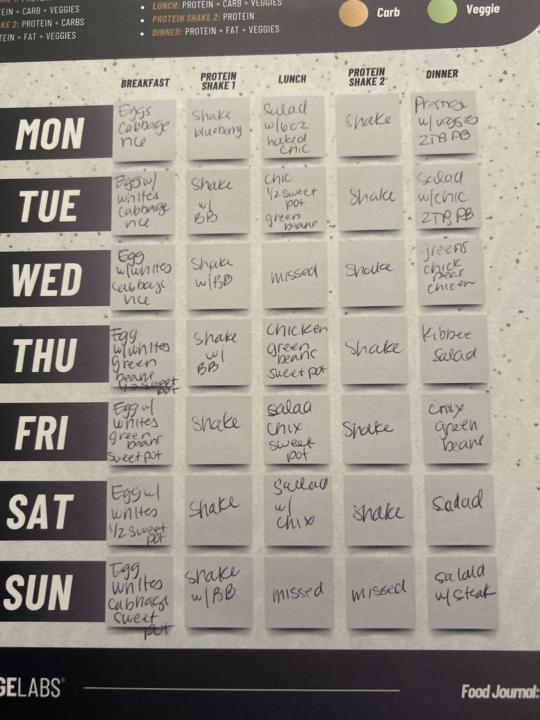 LUNCH: PROTEIN + CARB + VEGGIES
PROTEIN + CARB + VEGGIES
KE 2: PROTEIN + CARBS
PROTEIN SHAKE 2: PROTEIN
TEIN + FAT + VEGGIES
DINNER: PROTEIN + FAT + VEGGIES
Carb
Veggie
BREAKFAST
PROTEIN
SHAKE 1
LUNCH
PROTEIN
SHAKE 2
DINNER
MON
Eggs
Cabbage
rice
Shake
blueberry
Salad
w/6oz
baked
chic
Shake
w/veggies
2TB PB
TUE
Egg w/
whites
Cabbage
rice
Shake
w/
BB
Chic
1/2 sweet
pot
green
beans
Shake
Salad
w/chic
2TB PB
WED
Egg
w/whites
cabbage
rice
Shake
w/BB
missed
Shake
greens
chick
peas
chicken
THU
Egg
w/whites
green
beans
1/2 sweet
pot
Shake
w/
BB
Chicken
green
beans
sweet pot
Shake
Kibbee
salad
FRI
Egg w/
whites
green
beans
sweet pot
Shake
salad
chix
sweet
pot
Shake
chix
green
beans
SAT
Egg w/
whites
1/2 sweet
pot
Shake
Sallad
w/
chix
shake
Salad
SUN
Egg
whites
cabbage
sweet
pot
shake
w/BB
missed
missed
salad
w/steak
GELABS®
Food Journal: